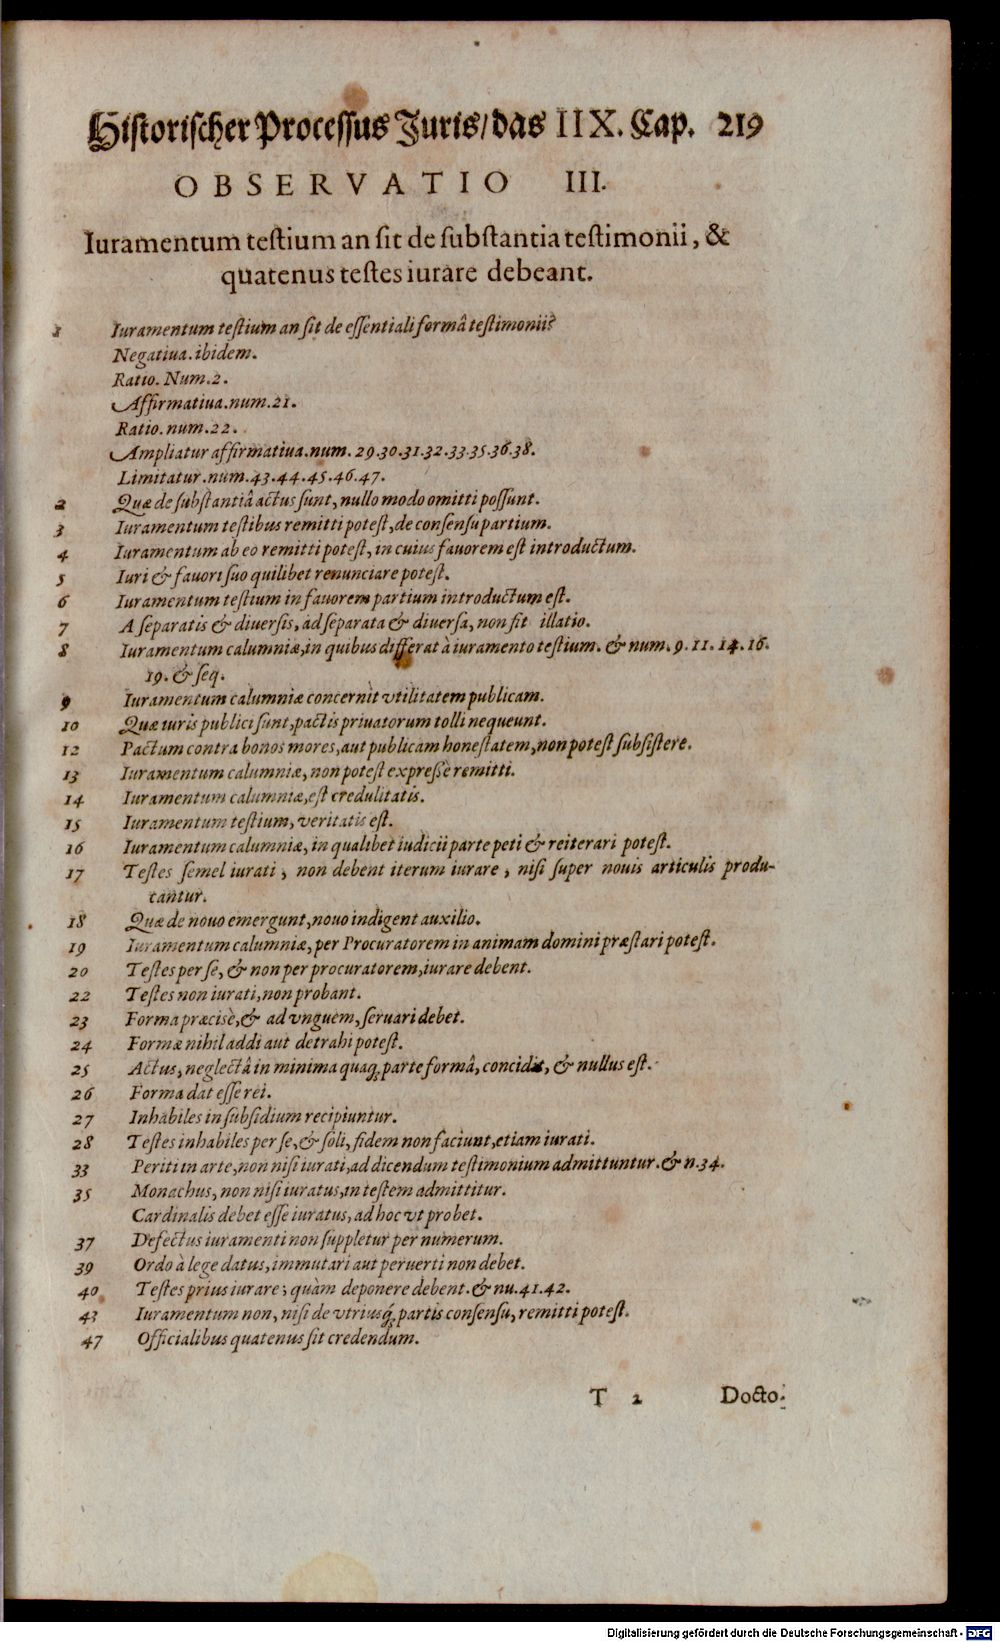 Historischer Processus Juris/das IIX. Cap. 219
OBSERVATIO III.
Iuramentum testium an sit de substantia testimonii, &
quatenus testes iurare debeant.
1 Iuramentum testium an sit de essentiali formâ testimonii?
Negatiua. ibidem.
Ratio. Num. 2.
Affirmatiua. num. 21.
Ratio. num. 22.
Ampliatur affirmatiua. num. 29.30.31.32.33.35.36.38.
Limitatur. num. 43.44.45.46.47.
2 Quæ de substantiâ actus sunt, nullo modo omitti possunt.
3 Iuramentum testibus remitti potest, de consensu partium.
4 Iuramentum ab eo remitti potest, in cuius fauorem est introductum.
5 Iuri & fauori suo quilibet renunciare potest.
6 Iuramentum testium in fauorem partium introductum est.
7 A separatis & diuersis, ad separata & diuersa, non fit illatio.
8 Iuramentum calumniæ, in quibus differat à iuramento testium. & num. 9. 11. 14. 16.
19. & seq.
9 Iuramentum calumniæ concernit vtilitatem publicam.
10 Quæ iuris publici sunt, pactis priuatorum tolli nequeunt.
12 Pactum contra bonos mores, aut publicam honestatem, non potest subsistere.
13 Iuramentum calumniæ, non potest expresse remitti.
14 Iuramentum calumniæ, est credulitatis.
15 Iuramentum testium, veritatis est.
16 Iuramentum calumniæ, in qualibet iudicii parte peti & reiterari potest.
17 Testes semel iurati, non debent iterum iurare, nisi super nouis articulis produ-
cantur.
18 Quæ de nouo emergunt, nouo indigent auxilio.
19 Iuramentum calumniæ, per Procuratorem in animam domini præstari potest.
20 Testes per se, & non per procuratorem, iurare debent.
22 Testes non iurati, non probant.
23 Forma præcisè, & ad vnguem, seruari debet.
24 Formæ nihil addi aut detrahi potest.
25 Actus, neglectâ in minima quaq; parte formâ, concidit, & nullus est.
26 Forma dat esse rei.
27 Inhabiles in subsidium recipiuntur.
28 Testes inhabiles per se, & soli, fidem non faciunt, etiam iurati.
33 Periti in arte, non nisi iurati, ad dicendum testimonium admittuntur. & n. 34.
35 Monachus, non nisi iuratus, in testem admittitur.
Cardinalis debet esse iuratus, ad hoc vt probet.
37 Defectus iuramenti non suppletur per numerum.
39 Ordo à lege datus, immutari aut peruerti non debet.
40 Testes prius iurare; quàm deponere debent. & nu. 41.42.
43 Iuramentum non, nisi de vtriusq; partis consensu, remitti potest.
47 Officialibus quatenus sit credendum.
T 2 Docto-
Digitalisierung gefördert durch die Deutsche Forschungsgemeinschaft - DFG